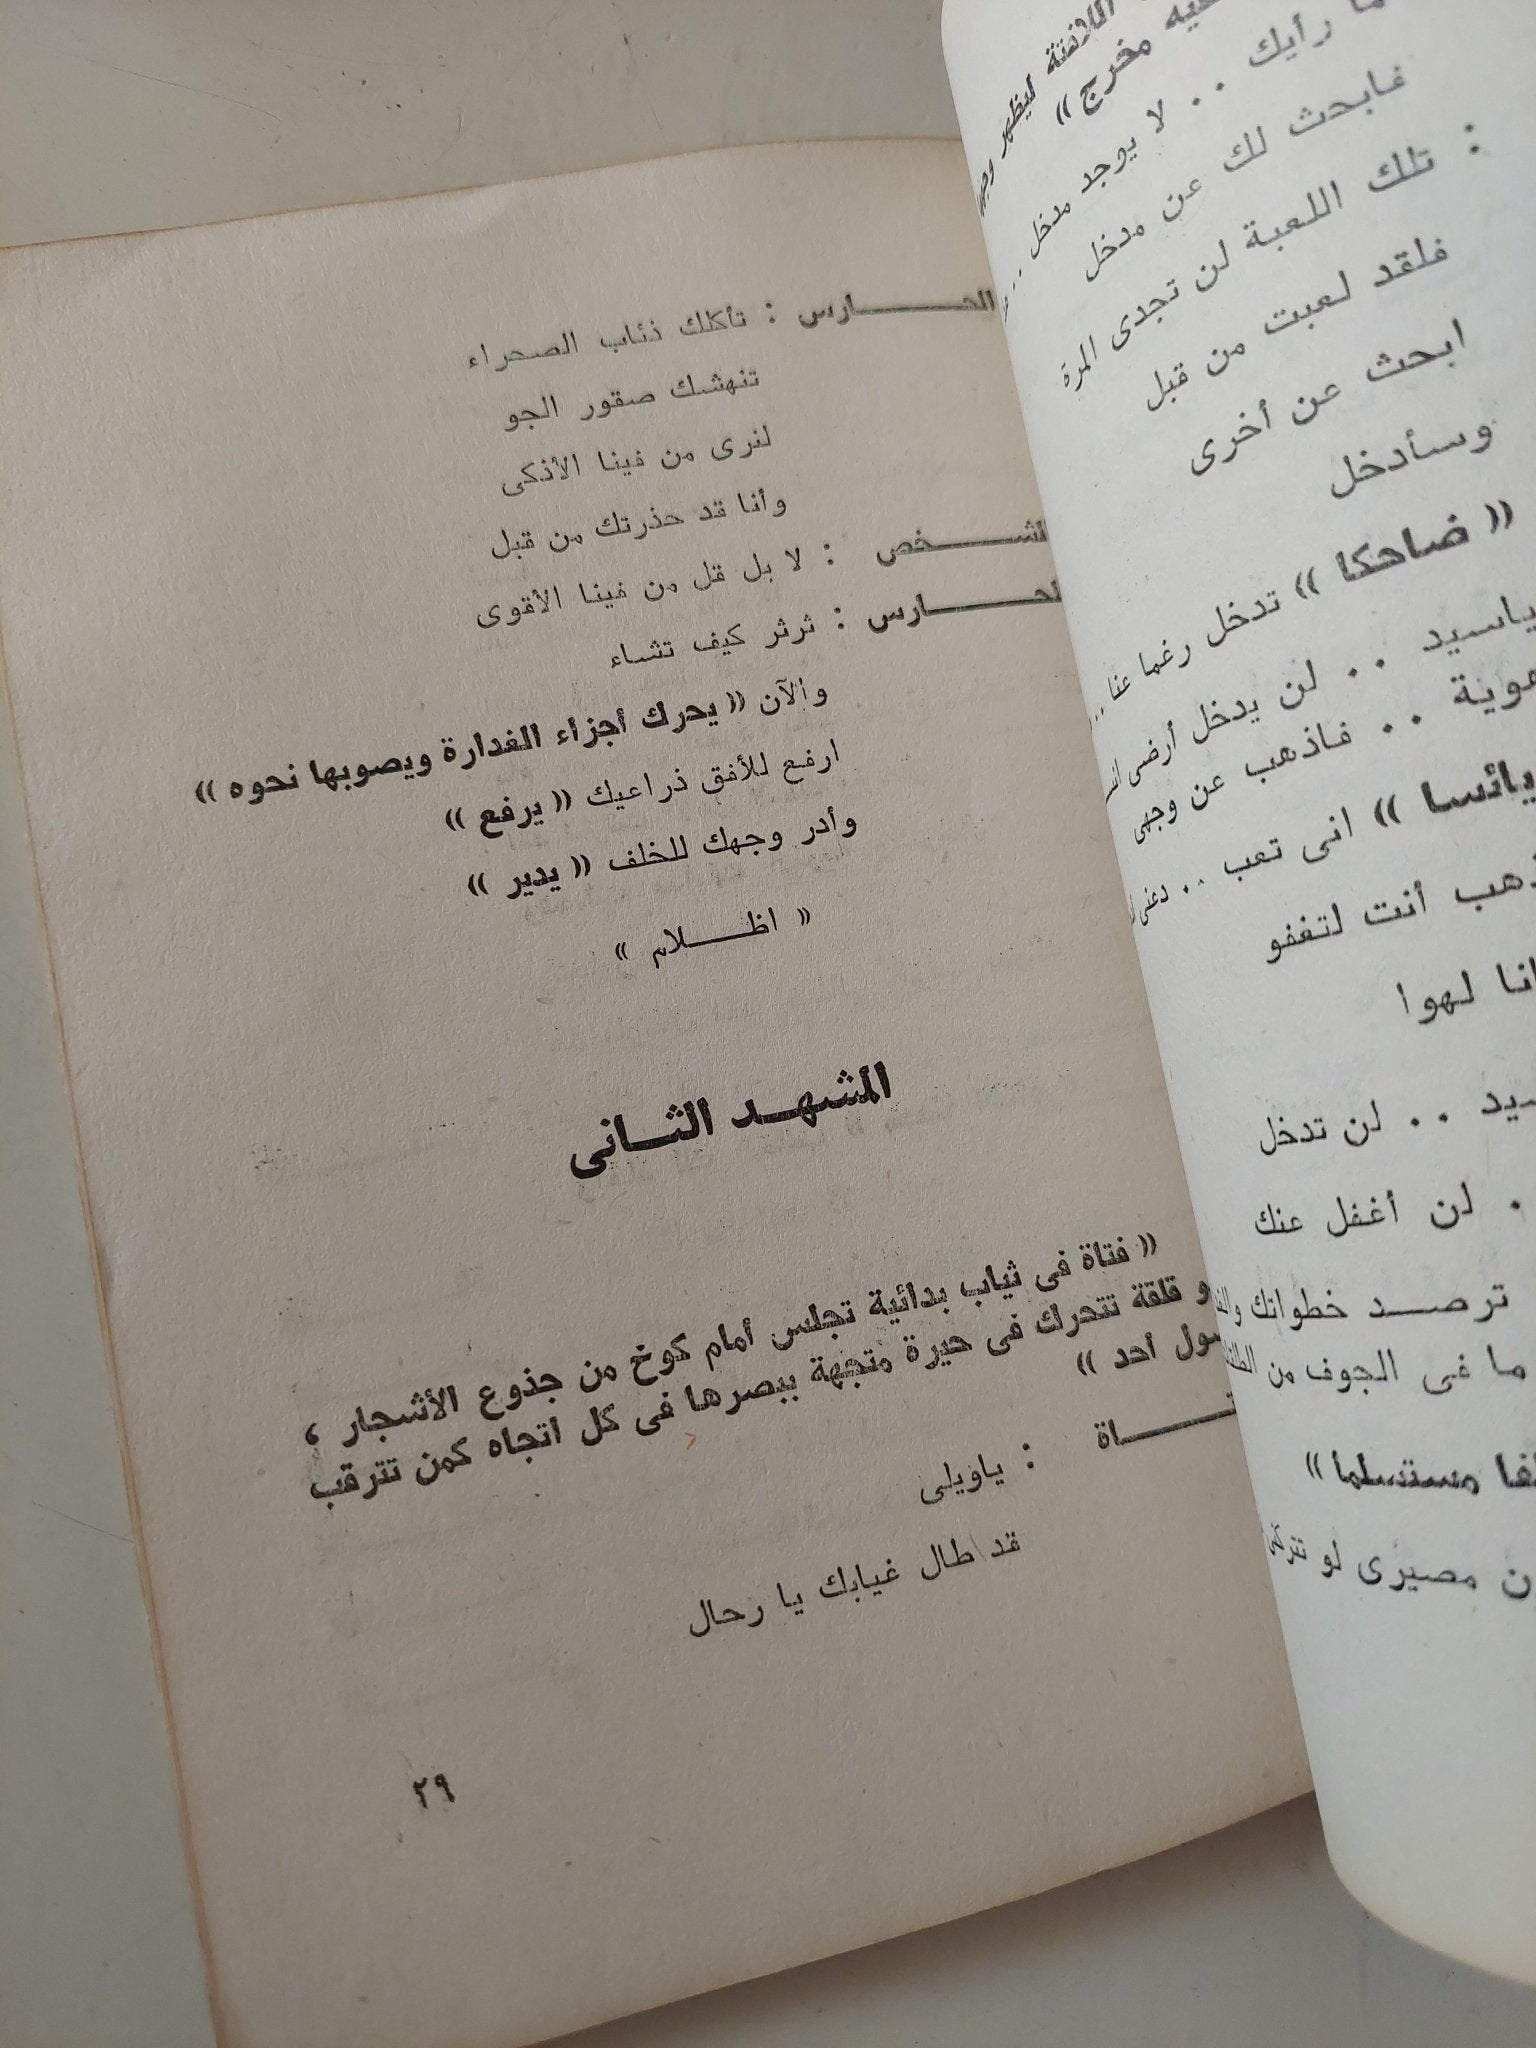 اللافتة ليظهر
مخرج »
رأيك . . لا يوجد مدخل . .
فابحث لك عن مدخل
: تلك اللعبة لن تجدى المرة
فلقد لعبت من قبل
ابحث عن أخرى
وسأدخل
« ضاحكا » تدخل رغما عنا . .
ياسيد . . لن يدخل أرضى
. . فاذهب عن وجهى
يائسا » انى تعب . . دعنى
أنت لتغفو
لهوا
. . لن تدخل
. لن أغفل عنك
ترصد خطواتك
ما فى الجوف من
مستسلما »
مصيرى لو
الحارس : تأكلك ذئاب الصحراء
تنهشك صقور الجو
لنرى من فينا الأذكى
وأنا قد حذرتك من قبل
الشخص : لا بل قل من فينا الأقوى
الحارس : ثرثر كيف تشاء
والآن « يحرك أجزاء الغدارة ويصوبها نحوه »
ارفع للأفق ذراعيك « يرفع »
وأدر وجهك للخلف « يدير »
« اظلام »
المشهد الثانى
« فتاة فى ثياب بدائية تجلس أمام كوخ من جذوع الأشجار ،
و قلقة تتحرك فى حيرة متجهة ببصرها فى كل اتجاه كمن تترقب
أحد »
: ياويلى
قد طال غيابك يا رحال
٢٩